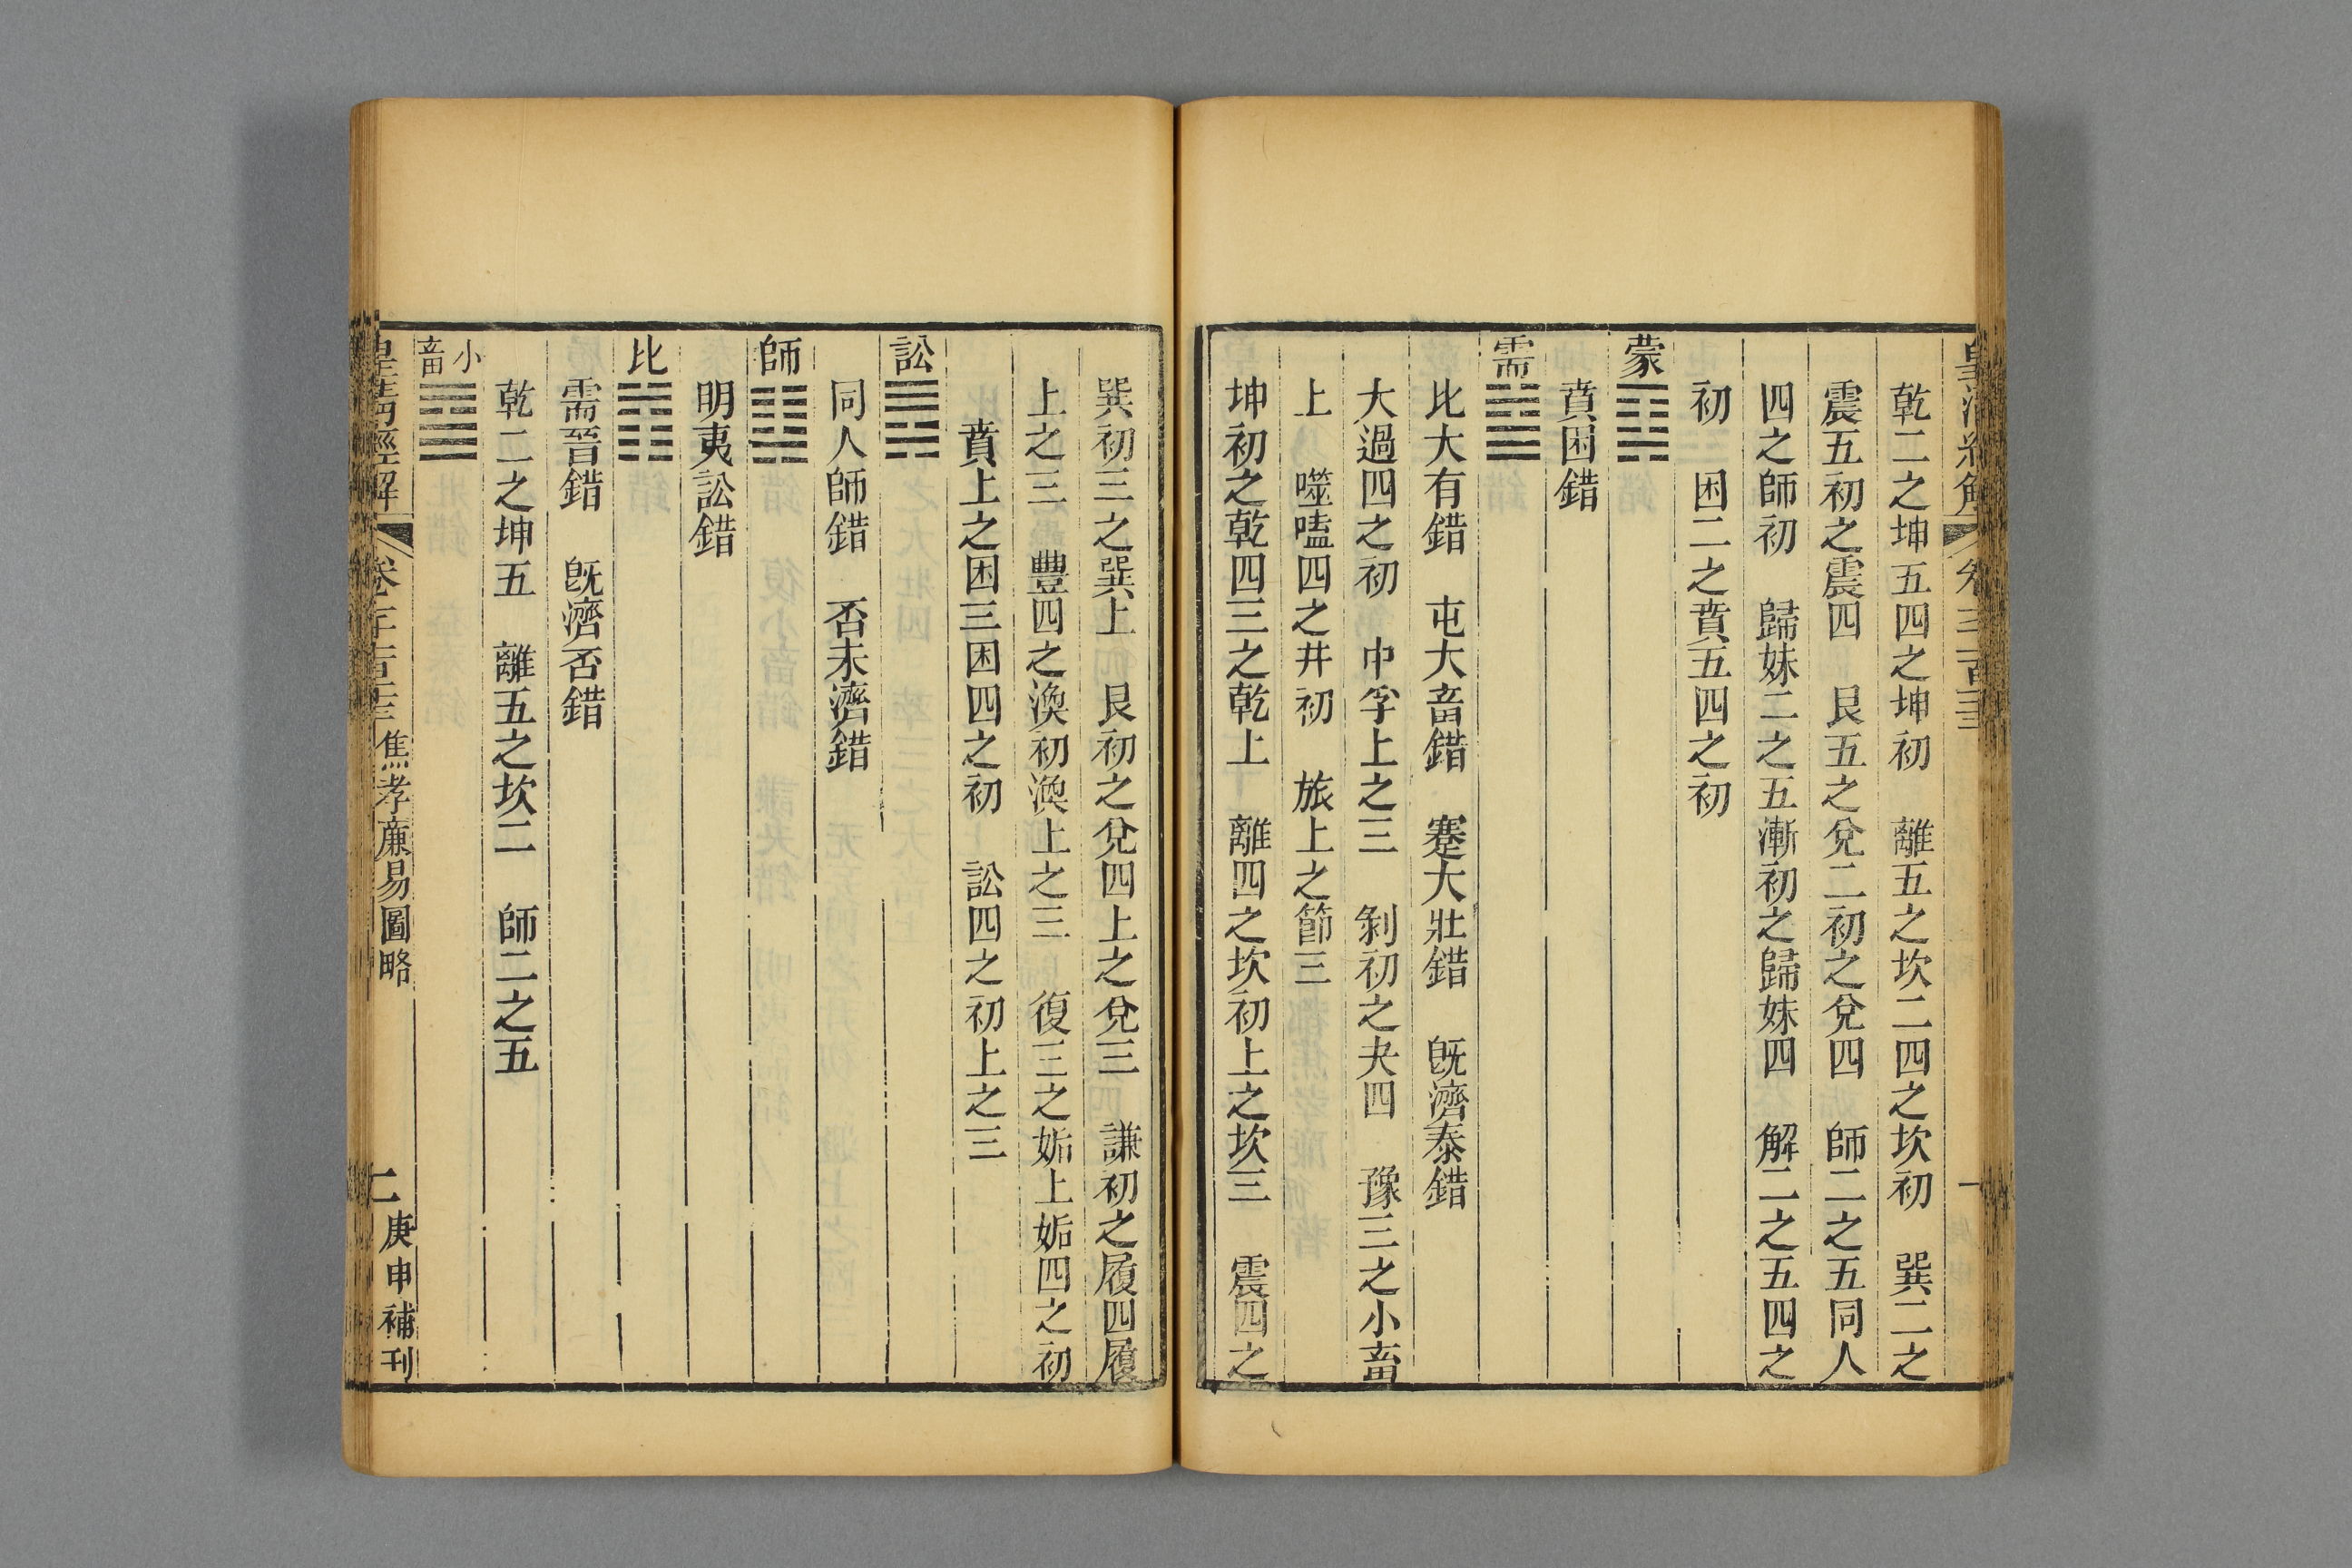 乾二之坤五四之坤初　離五之坎二四之坎初　巽二之
震五初之震四　艮五之兌二初之兌四　師二之五同人
四之師初　歸妹二之五漸初之歸妹四　解二之五四之
初　困二之賁五四之初
蒙䷃
賁困錯
需䷄
比大有錯　屯大畜錯　蹇大壯錯　旣濟泰錯
大過四之初　中孚上之三　剝初之夬四　豫三之小畜
上　噬嗑四之井初　旅上之節三
坤初之乾四三之乾上　離四之坎初上之坎三　震四之
巽初三之巽上　艮初之兌四上之兌三　謙初之履四履
上之三　豐四之渙初渙上之三　復三之姤上姤四之初
賁上之困三困四之初　訟四之初上之三
訟䷅
同人師錯　否未濟錯
師䷆
明夷訟錯
比䷇
需晉錯　旣濟否錯
乾二之坤五　離五之坎二　師二之五
小畜䷈
皇清經解 焦孝廉易圖略 二 庚申補刊